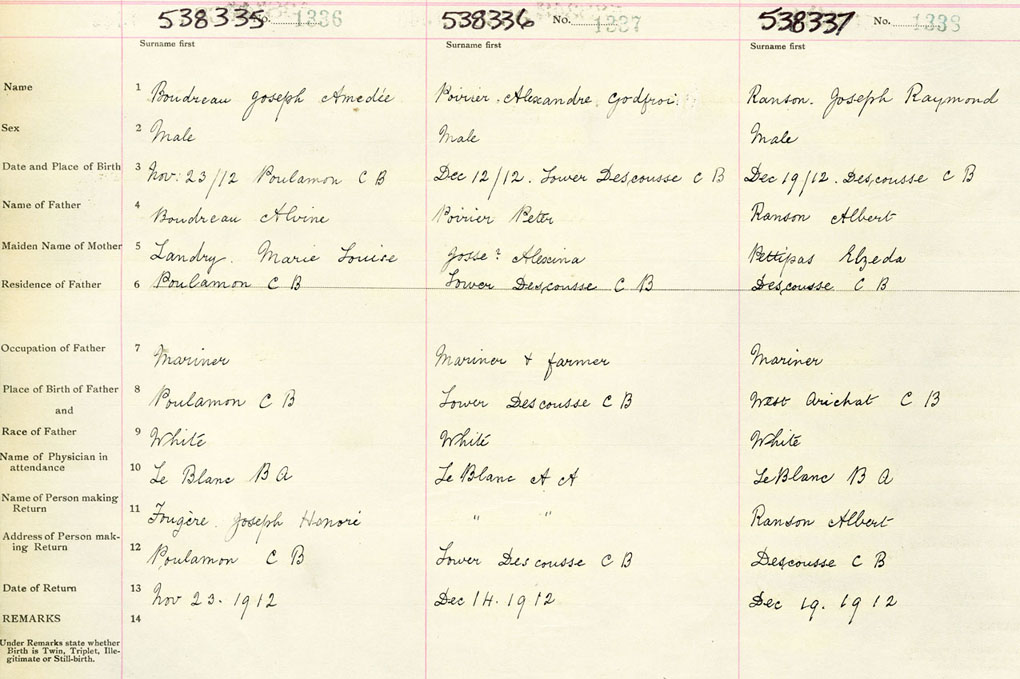 538335 No. 1336 538336 No. 1337 538337 No. 1338
Surname first Surname first Surname first
Name 1 Boudreau Joseph Amedée Poirier. Alexandre Godfroi Ranson. Joseph Raymond
Sex 2 Male Male Male
Date and Place of Birth 3 Nov. 23/12 Poulamon C B Dec 12/12. Lower Descousse C B Dec 19/12. Descousse C B
Name of Father 4 Boudreau Alvine Poirier Peter Ranson Albert
Maiden Name of Mother 5 Landry. Marie Louise Josse? Alexina Pettipas Elzeda
Residence of Father 6 Poulamon C B Lower Descousse C B Descousse C B
Occupation of Father 7 Mariner Mariner & farmer Mariner
Place of Birth of Father 8 Poulamon C B Lower Descousse C B West Arichat C B
and
Race of Father 9 White White White
Name of Physician in
attendance 10 Le Blanc B A Le Blanc A A Le Blanc B A
Name of Person making
Return 11 Fougère. Joseph Honoré " " Ranson Albert
Address of Person mak-
ing Return 12 Poulamon C B Lower Descousse C B Descousse C B
Date of Return 13 Nov 23. 1912 Dec 14. 1912 Dec 19. 1912
REMARKS 14
Under Remarks state whether
Birth is Twin, Triplet, Ille-
gitimate or Still-birth.